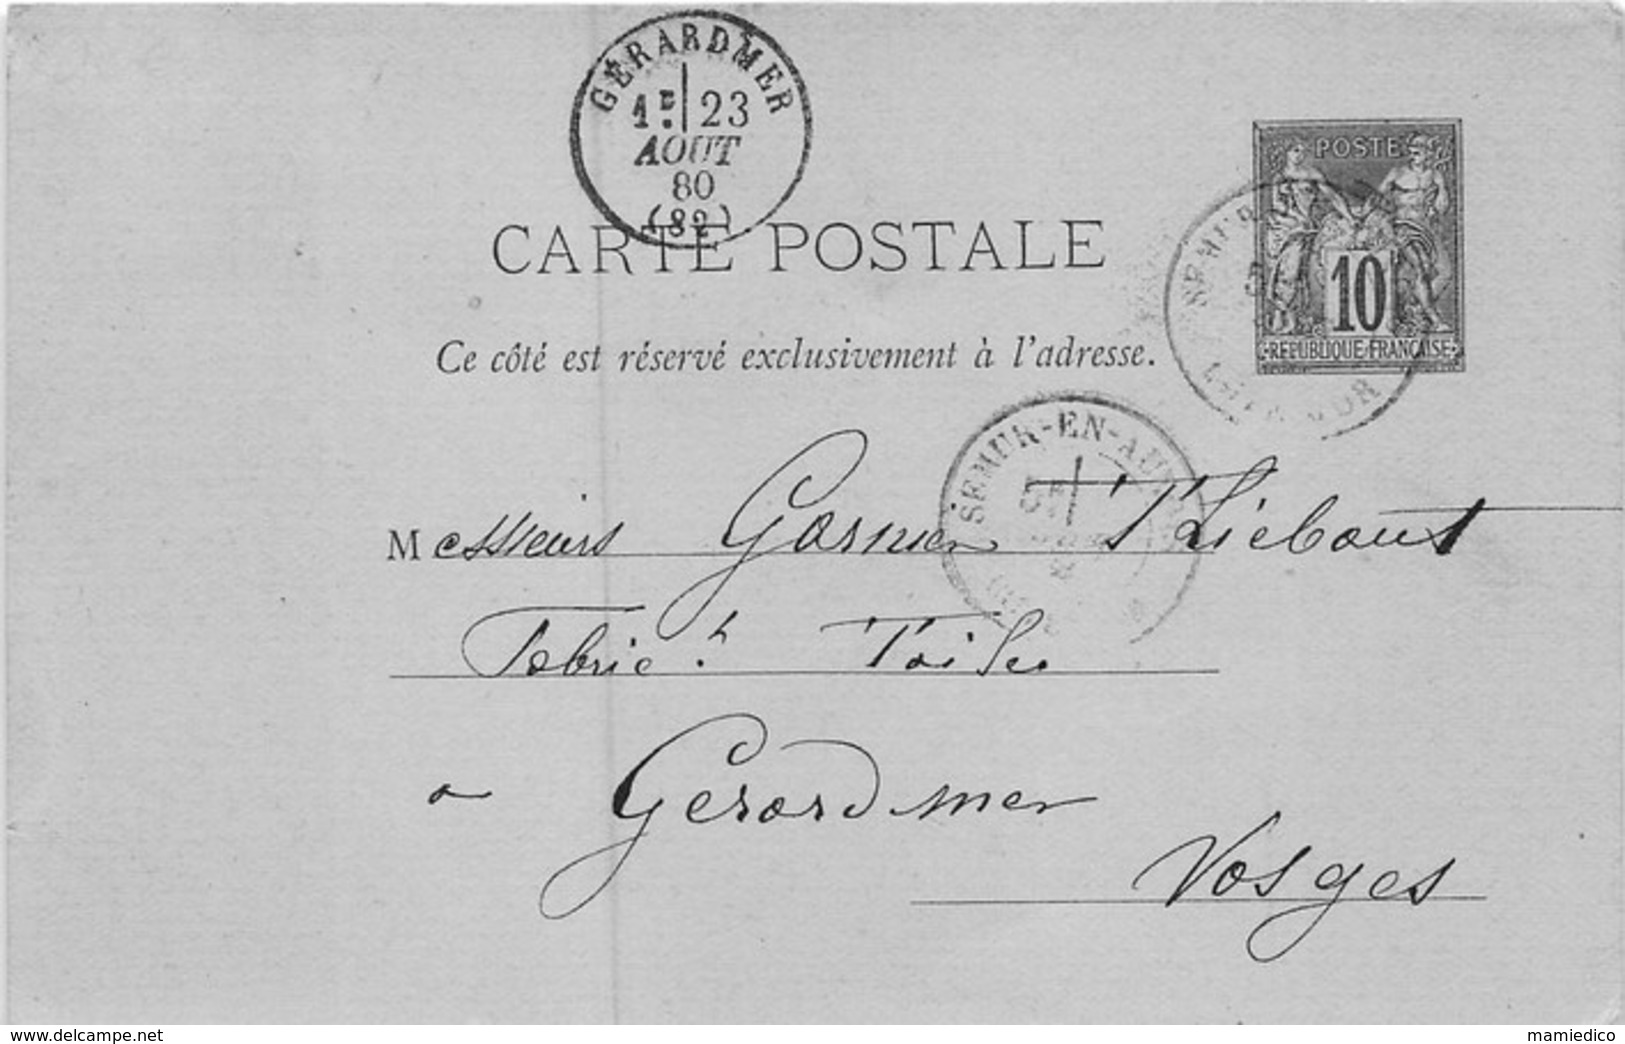 GÉRARDMER
1E 23
AOUT
80
(82)
POSTE
10
REPUBLIQUE FRANÇAISE
CARTE POSTALE
Ce côté est réservé exclusivement à l'adresse.
SEMUR-EN-AUXOIS
Messieurs Garnier Thiebaut
Fabric.ts Toiles
a Gerardmer
Vosges
www.delcampe.net
mamiedico